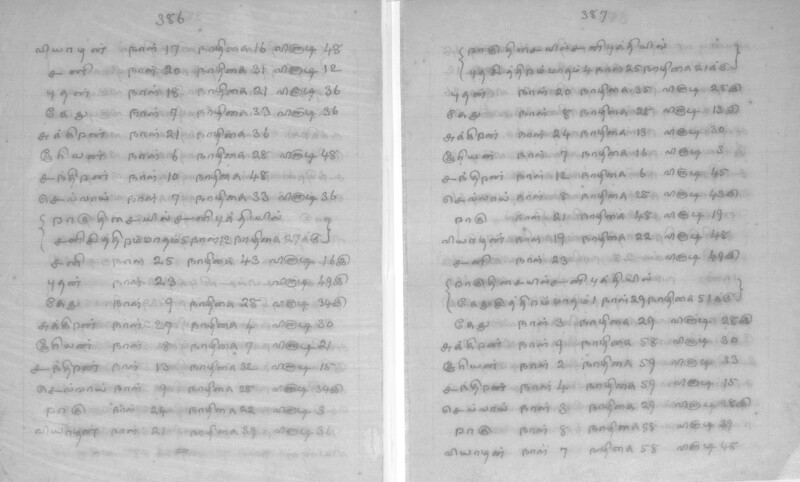 386
வியாழன் நாள் 17 நாழிகை 16 வினாடி 48
சனி நாள் 20 நாழிகை 31 வினாடி 12
புதன் நாள் 18 நாழிகை 21 வினாடி 36
கேது நாள் 7 நாழிகை 33 வினாடி 36
சுக்கிரன் நாள் 21 நாழிகை 36
சூரியன் நாள் 6 நாழிகை 28 வினாடி 48
சந்திரன் நாள் 10 நாழிகை 48
செவ்வாய் நாள் 7 நாழிகை 33 வினாடி 36
ராகு திசையில் சனி புத்தியில்
சனி நாள் 25 நாழிகை 43 வினாடி 16
புதன் நாள் 23 வினாடி 49
கேது நாள் 9 நாழிகை 28 வினாடி 34
சுக்கிரன் நாள் 27 நாழிகை 4 வினாடி 30
சூரியன் நாள் 8 நாழிகை 7 வினாடி 21
சந்திரன் நாள் 13 நாழிகை 32 வினாடி 15
செவ்வாய் நாள் 9 நாழிகை 28 வினாடி 34
ராகு நாள் 24 நாழிகை 22 வினாடி 3
வியாழன் நாள் 21 நாழிகை 39 வினாடி 36
387
ராகு திசையில் சனி புத்தியில்
புதன் நாள் 20 நாழிகை 35 வினாடி 25
கேது நாள் 8 நாழிகை 28 வினாடி 13
சுக்கிரன் நாள் 24 நாழிகை 13 வினாடி 30
சூரியன் நாள் 7 நாழிகை 16 வினாடி 3
சந்திரன் நாள் 12 நாழிகை 6 வினாடி 45
செவ்வாய் நாள் 8 நாழிகை 28 வினாடி 43
ராகு நாள் 21 நாழிகை 48 வினாடி 19
வியாழன் நாள் 19 நாழிகை 22 வினாடி 48
சனி நாள் 23 வினாடி 49
ராகு திசையில் சனி புத்தியில்
கேது நாள் 3 நாழிகை 29 வினாடி 28
சுக்கிரன் நாள் 9 நாழிகை 58 வினாடி 30
சூரியன் நாள் 2 நாழிகை 59 வினாடி 33
சந்திரன் நாள் 4 நாழிகை 59 வினாடி 15
செவ்வாய் நாள் 3 நாழிகை 29 வினாடி 28
ராகு நாள் 8 நாழிகை 58 வினாடி 39
வியாழன் நாள் 7 நாழிகை 58 வினாடி 45